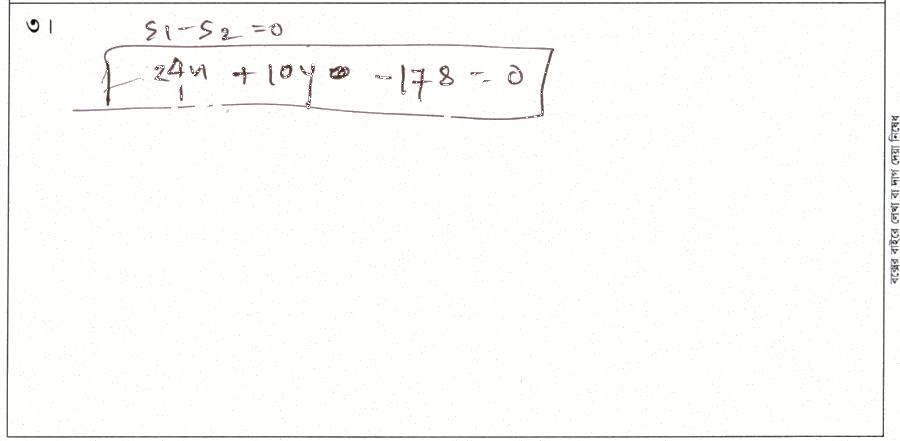 ৩।
S1-S2=0
24x + 10y -178=0
বক্সের বাইরে লেখা বা দাগ দেয়া নিষেধ